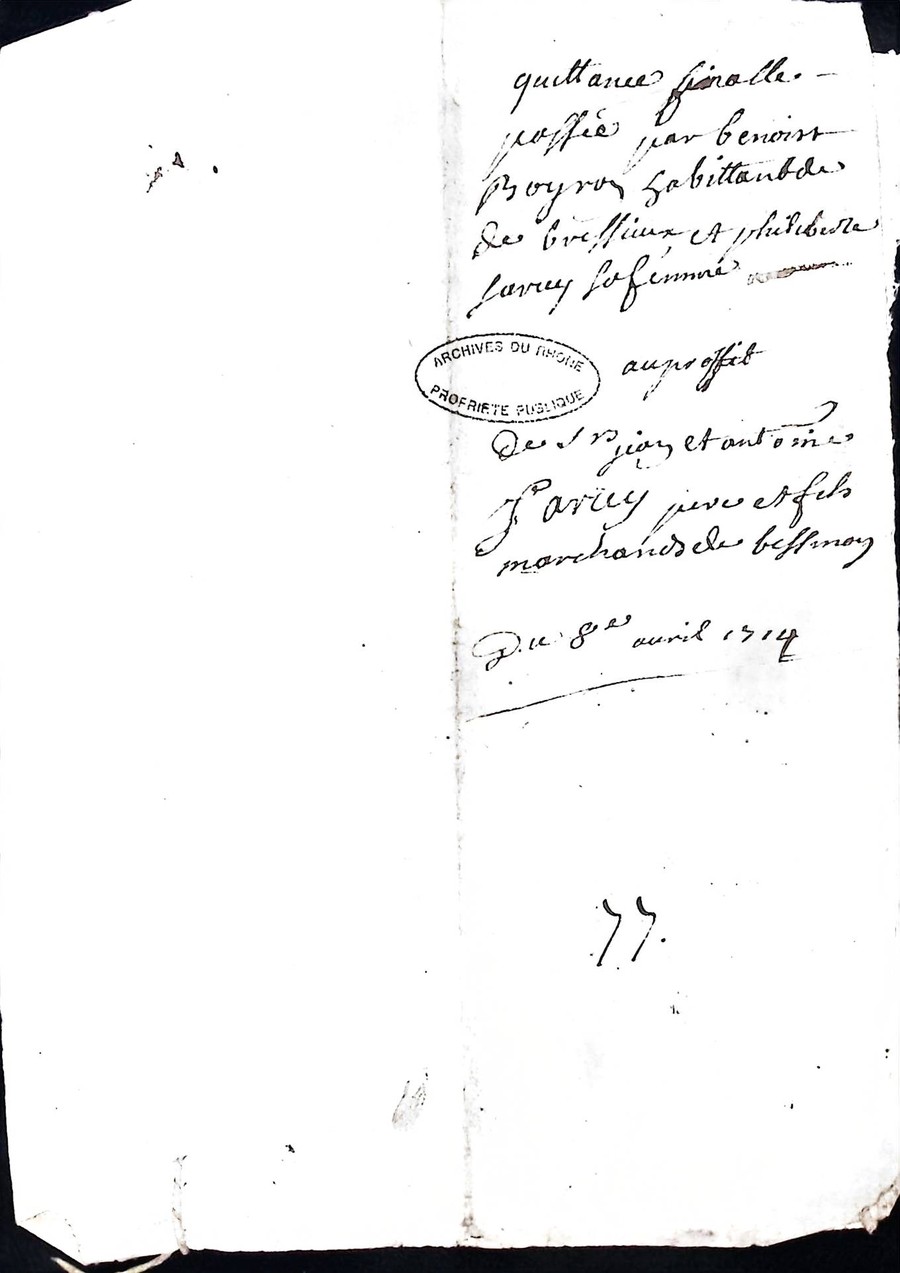 quittance finalle.
passée par benoist
Boyron habittant de
de bressieux et philiberte
sa femme
ARCHIVES DU RHONE
PROPRIETE PUBLIQUE
au proffit
De Sr jean et antoine
pere et fils
marchands de bessenay
Du 8e avril 1714
77.